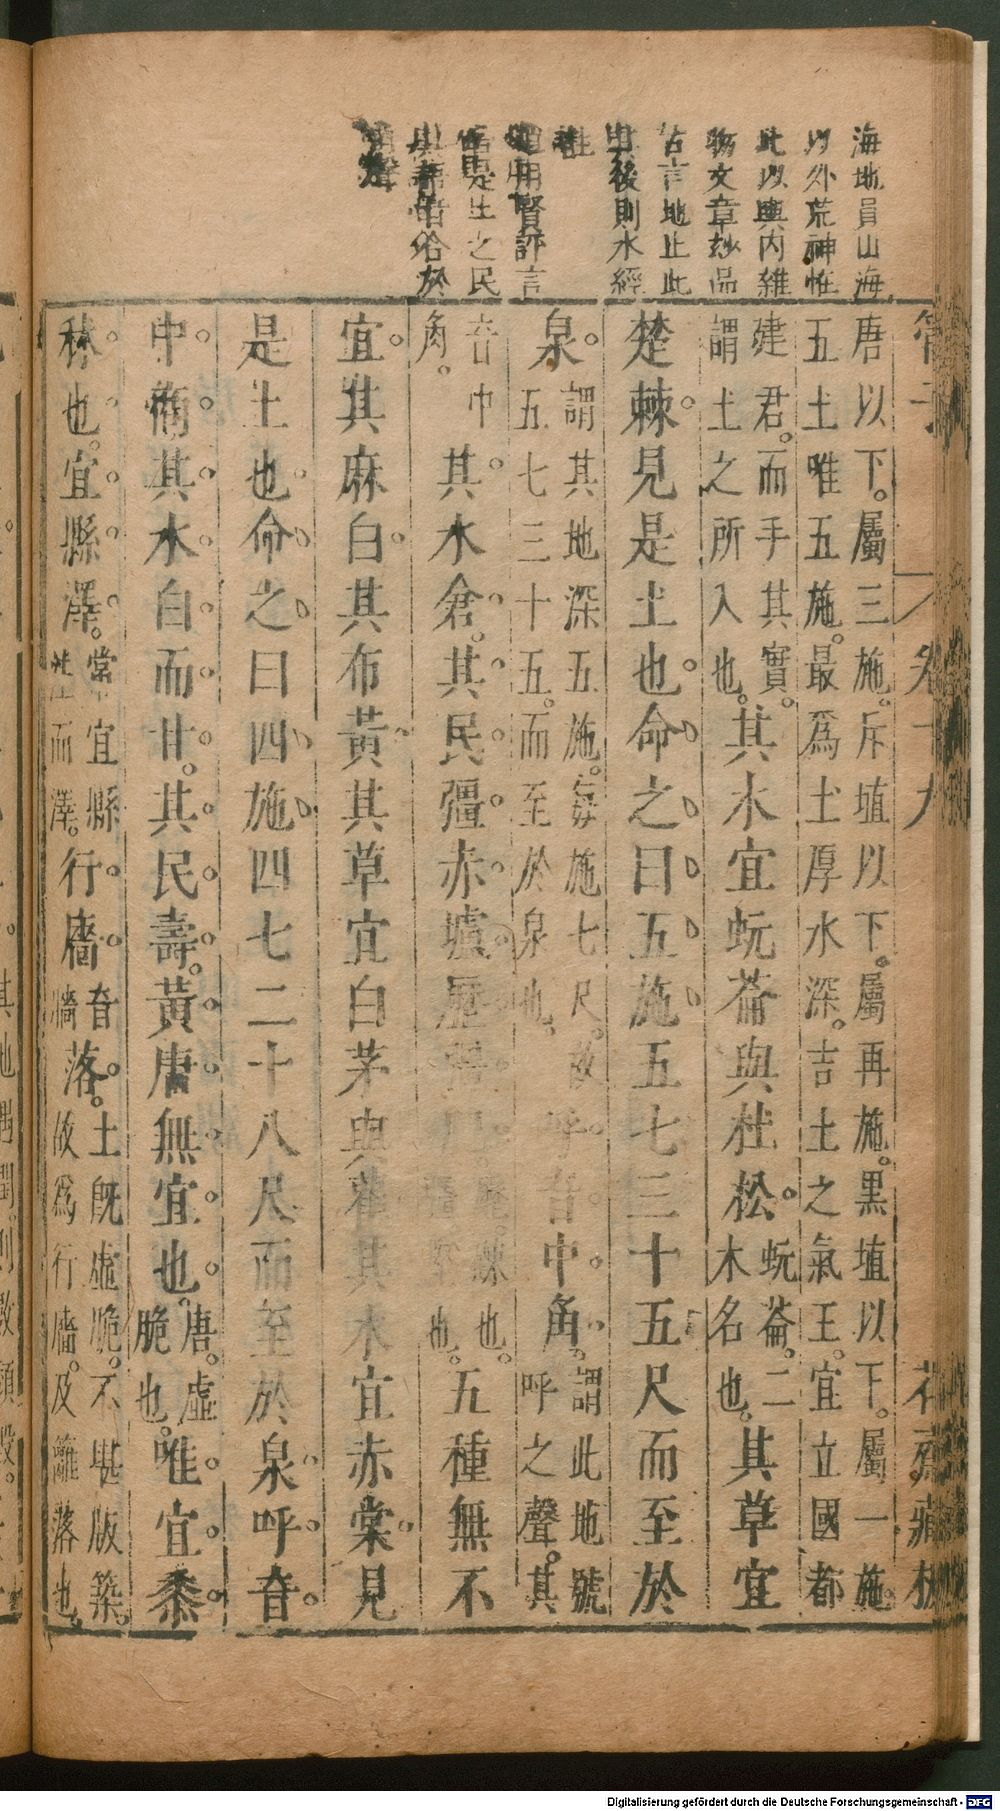 海地員山海
以外荒神怪
此以輿內雜
物文章妙品
古言地止此
其後則水經
注
用賢評言
是土之民
與語皆洽於
聲
管子
卷十九
花齋藏板
唐以下。屬三施。斥埴以下。屬再施。黑埴以下。屬一施。
五土唯五施。最爲土厚水深。吉土之氣王。宜立國都
建君。而手其實。
謂土之所入也。
其水宜蚖菕與杜松。
蚖菕。二
木名也。
其草宜
楚棘。見是土也。命之曰五施五七三十五尺而至於
泉。
謂其地深五施。每施七尺。故
五七三十五。而至於泉也。
呼音中角。
謂此地號
呼之聲。其
音中
角。
其水倉。其民彊。赤壚歷彊肥。
歷。疎也。
彊。堅也。
五種無不
宜。其麻白。其布黃其草宜白茅與雚其木宜赤棠。見
是土也。命之曰四施四七二十八尺而至於泉。呼音。
中商。其水白而甘。其民壽。黃唐無宜也。
唐。虛
脆也。
唯宜黍
秫也。宜縣澤。
常宜縣
性而澤。
行廧。
音
牆
落。
土旣虛脆。不堪版築。
故爲行廧。及籬落也。
Digitalisierung gefördert durch die Deutsche Forschungsgemeinschaft - DFG